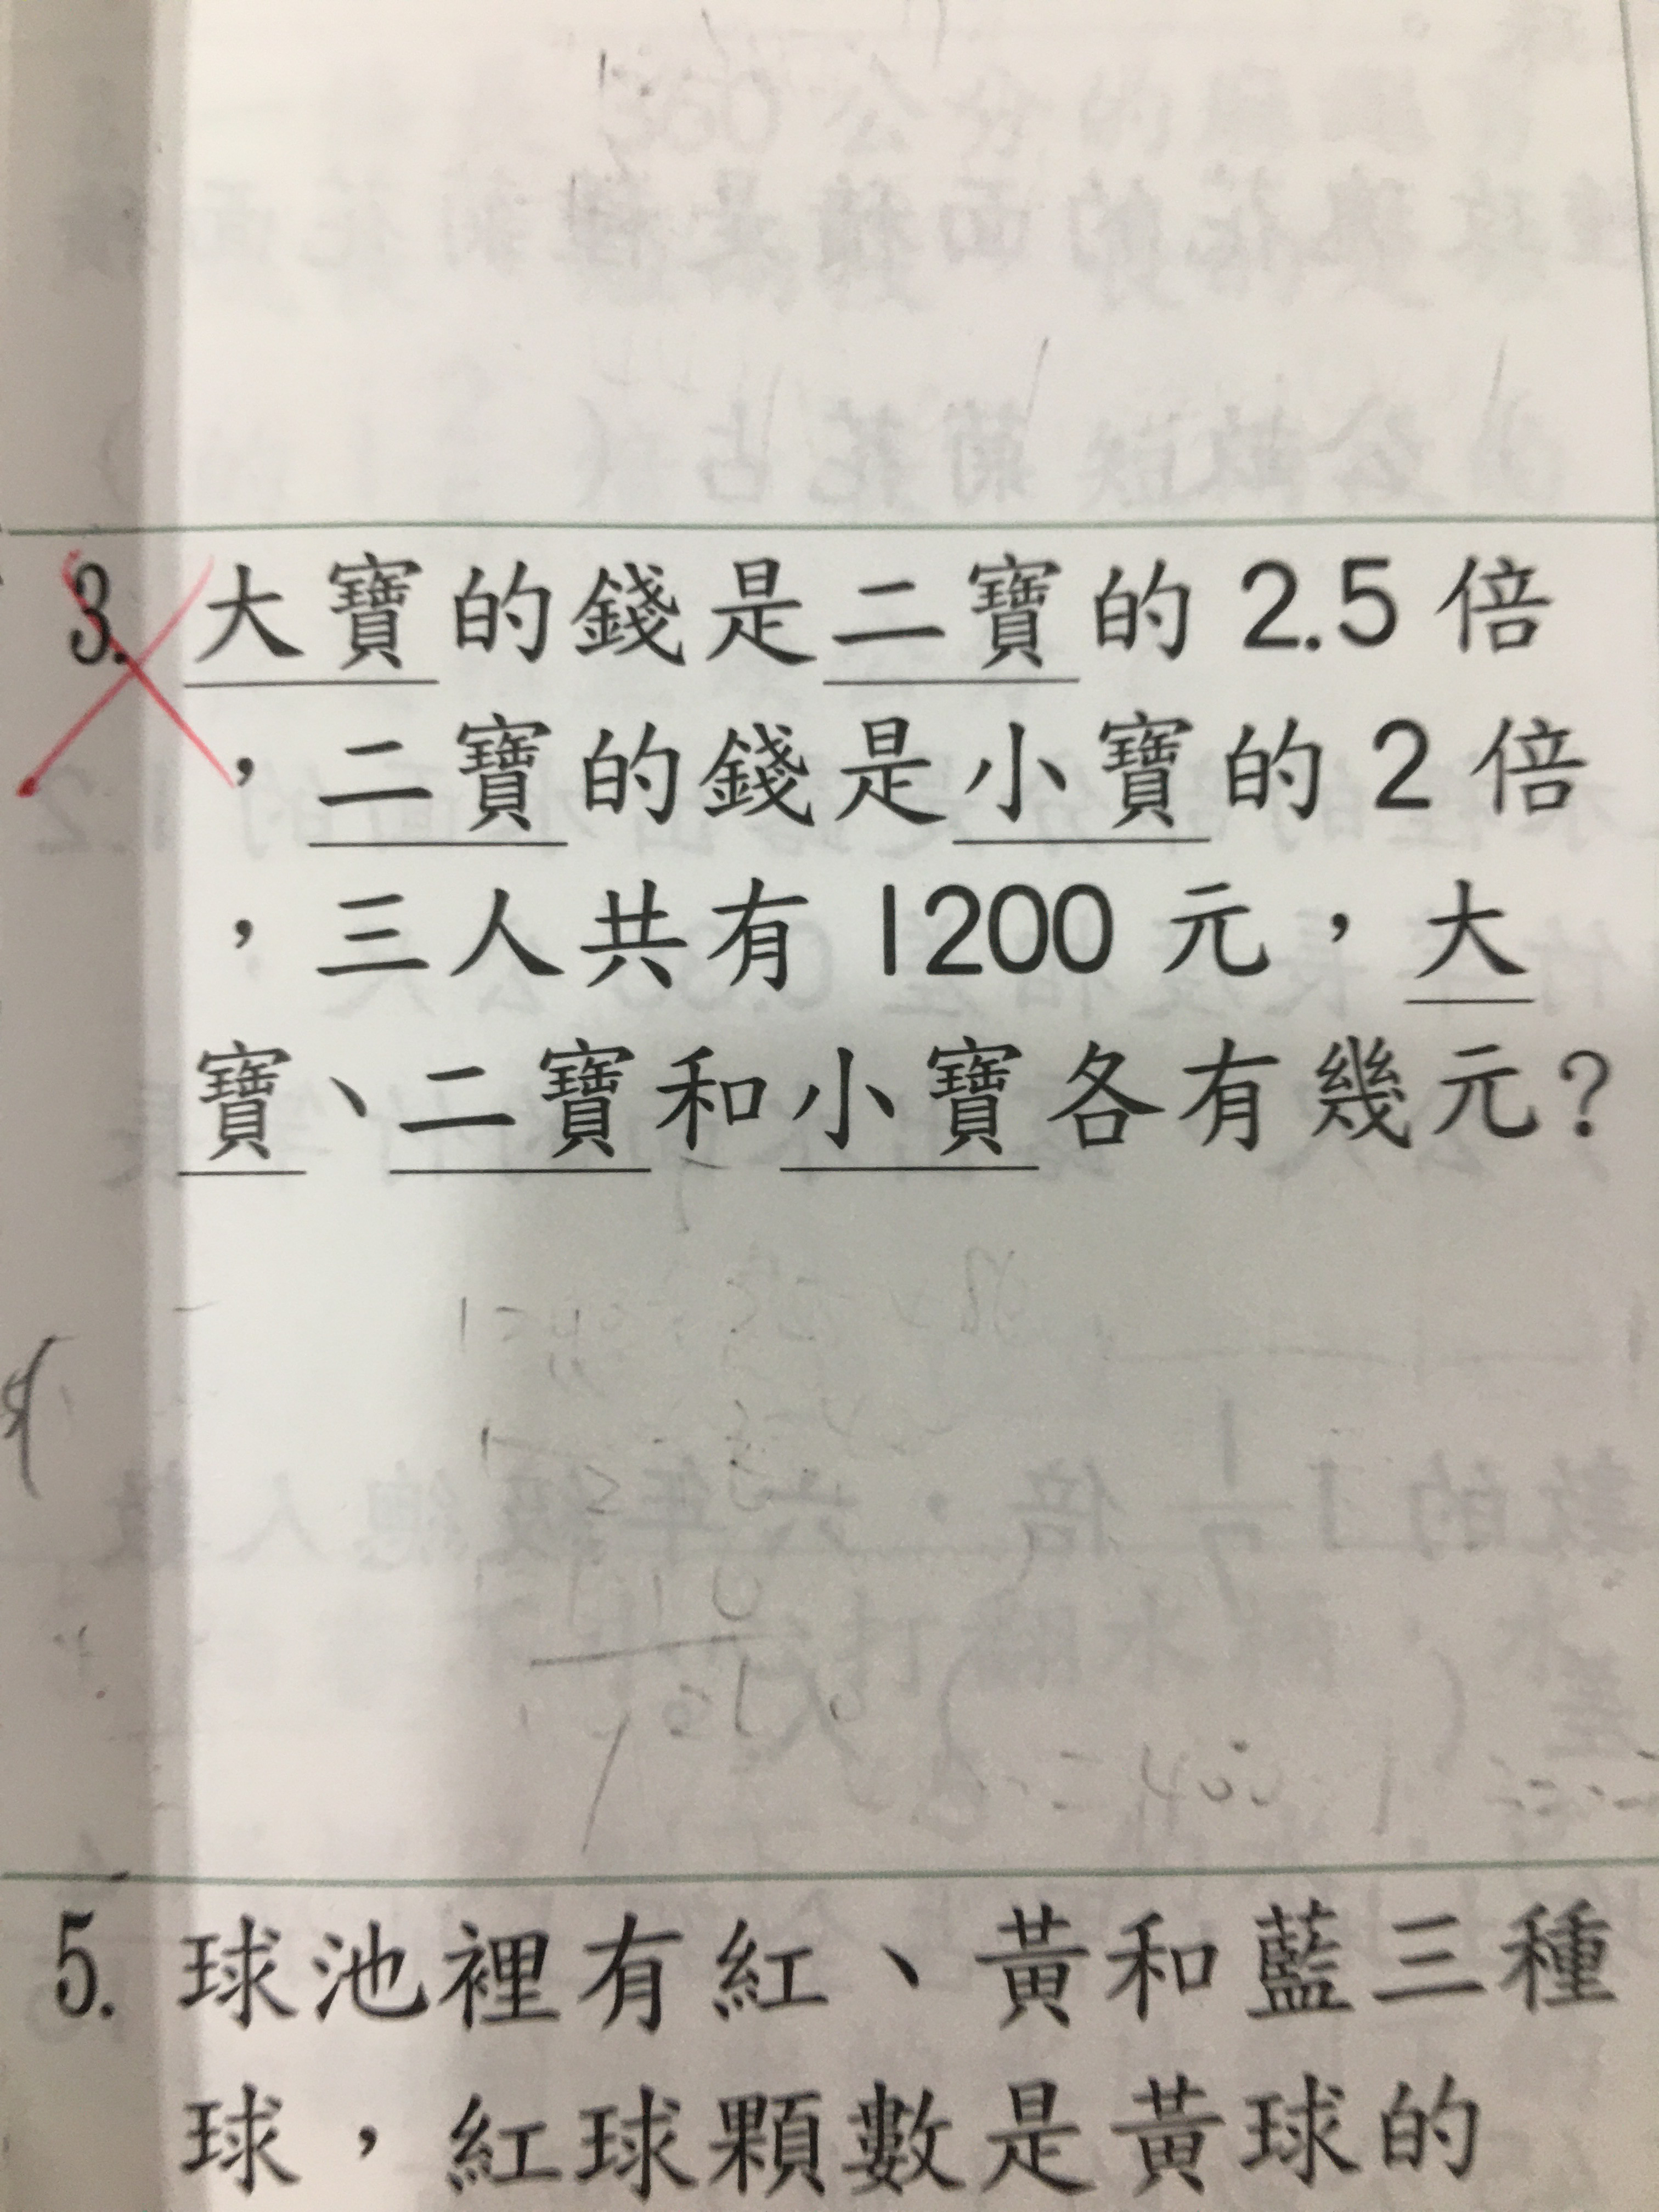 3. 大寶的錢是二寶的 2.5 倍
，二寶的錢是小寶的 2 倍
，三人共有 1200 元，大
寶、二寶和小寶各有幾元？
5. 球池裡有紅、黃和藍三種
球，紅球顆數是黃球的